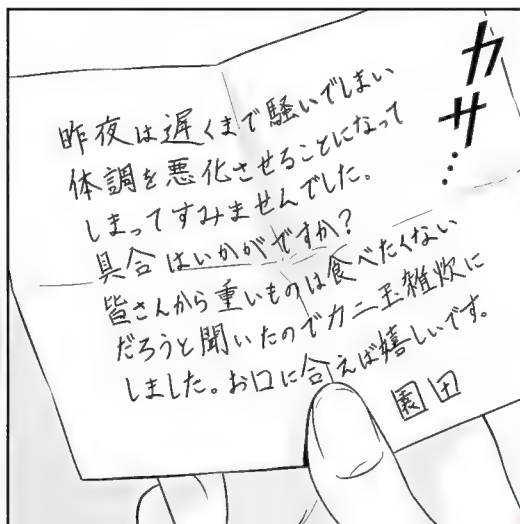 カサ…
昨夜は遅くまで騒いでしまい
体調を悪化させることになって
しまってすみませんでした。
具合はいかがですか?
皆さんから重いものは食べたくない
だろうと聞いたのでカニ玉雑炊に
しました。お口に合えば嬉しいです。
園田